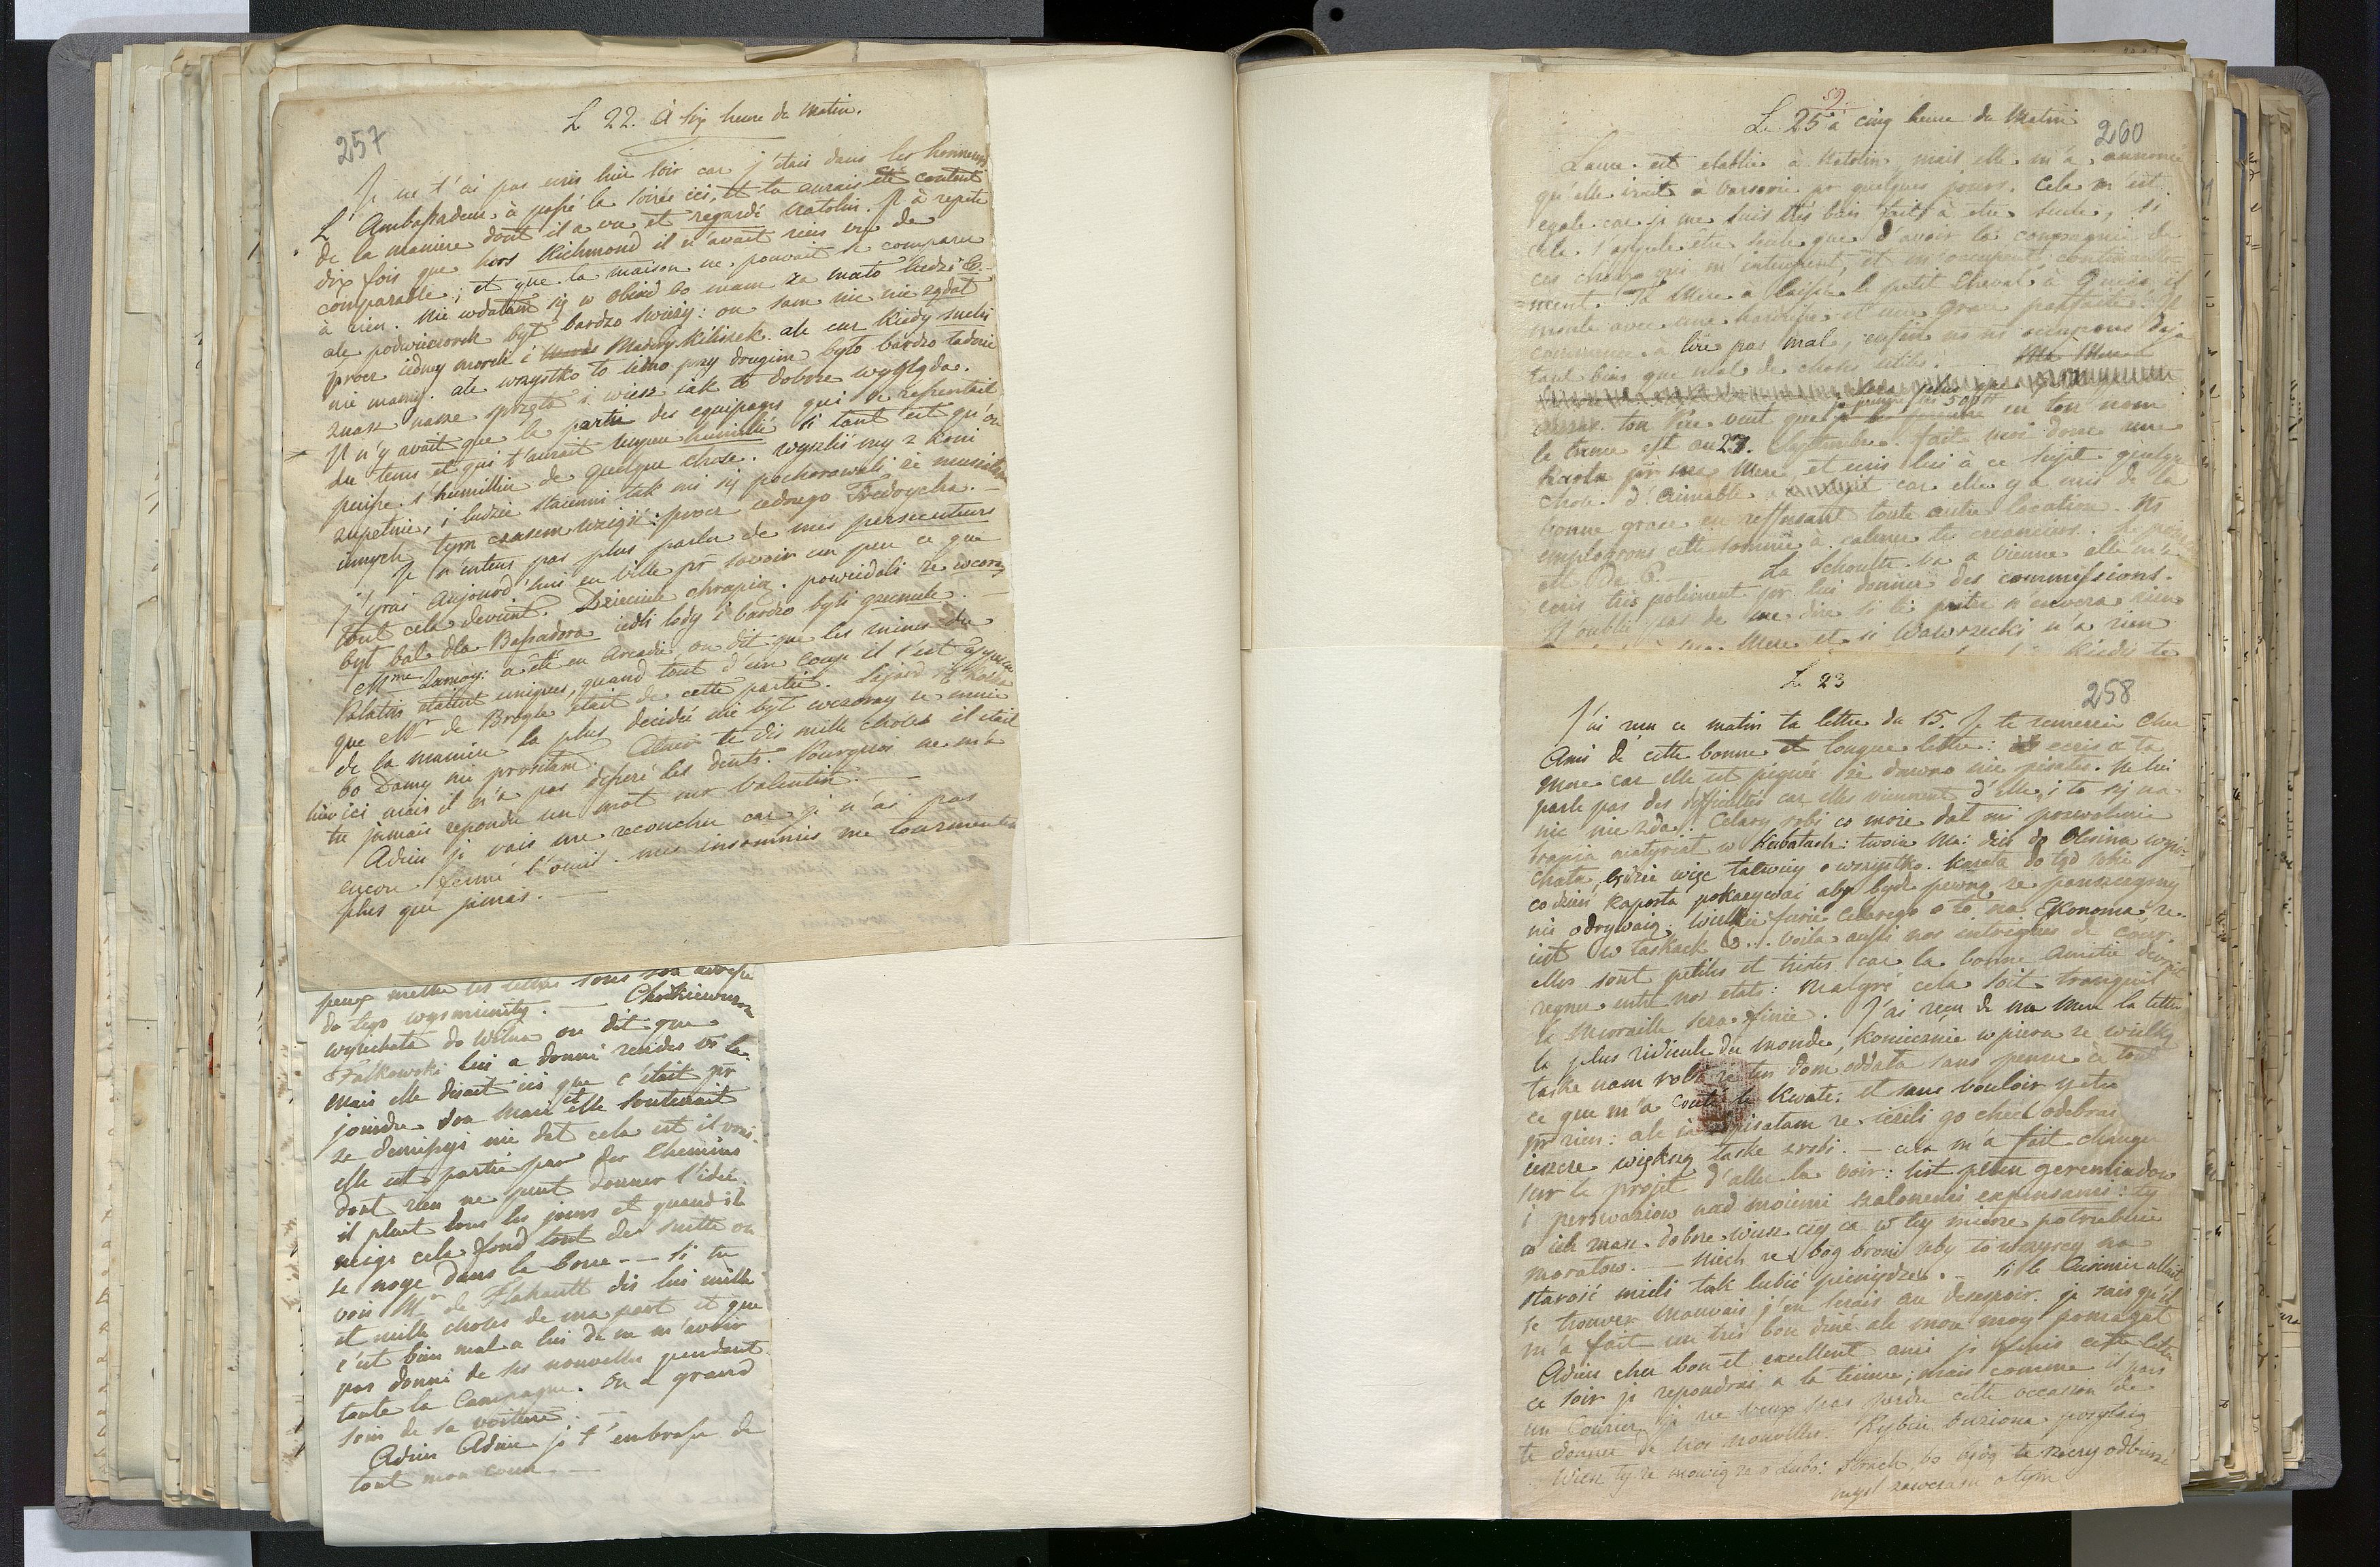 257
L 22. à six heure du Matin.
Je ne t'ai pas ecris hier soir car j'étais dans les honneurs
L'Ambassadeur à passé la soirée ici, et tu aurais été content
de la maniere dont il a vu et regardé Natolin. Il à repeté
dix fois que hors Richmond il n'avait rien vu de
comparable; et que la maison ne pouvait se comparer
à rien. Nie wdałam się w obiad bo mam za mało ludzi
ale podwieczorek był bardzo świeży: on sam nic nie zjadł
procz iedney moreli i Madery kiliszek. ale cur kiedy
nie mamy. ale wszystko to iedno przy drugim było bardzo ładnie
znasz nasze sprzęta i wiesz iak to dobrze wygląda.
Il n'y avait que la partie des equipages qui se ressentait
du tems et qui t'aurait un peu humilié si tant est qu'on
puisse s'humilier de quelque chose. wyszli my z koni
zupełnie, i ludzie staienni tak mi się pochorowali że musiałam
innych tym czasem wziąść: procz iednego Fredrycha.
Je n'entens pas plus parler de mes persecuteurs
j'yrai aujourd'hui en ville pr savoir un peu ce que
tout cela devient. Dziecinie chrapią. powiedali ze wczoray
był bal dla Bassadora iedli lody i bardzo byli grzeczne.
Mme Lamoy: a été en Arcadie, on dit que les mines du
Palatin étaient uniques, quand tout d'un coup il s'est apperçu
que Mr de Broglie était de cette partie.
de la maniere la plus decidée nie był wczoray u mnie
bo Damy nie prosiłam. te dis mille choses il était
hier ici mais il n'a pas desseré les dents. Pourquoi ne m'a
tu jamais repondu un mot sur Valentin.
Adieu je vais me recoucher car je n'ai pas
encore fermé l'oeuil. mes insomnies me tourmentent
plus que jamais.
peux mettre tes lettres sous son adresse
do tego wysmienity. Chodkiewiczowa
wyiechała do Wilna on dit que
Falkowski lui a donné rendés vs la
mais elle disait ici que c'était pr
joindre son mari et elle soutenait
elle est partie par des Chemins
dont rien ne peut donner l'idée.
il pleut tous les jours et quand il
neige cela fond tout de suite on
se noye dans la boue -- Si tu
vois Mr de Flahault dis lui mille
et mille choses de ma part et que
c'est bien mal a lui de ne m'avoir
pas donné de ses nouvelles pendant
toute la Campagne. On a grand
soin de sa voiture.
Adieu Adieu je t'embrasse de
tout mon coeur.
59.
260
Le 25 à cinq heure du Matin
Laure est etablie à Natolin, mais elle m'a annoncé
qu'elle irait à Varsovie pr quelques jours. Cela m'est
egale car je me suis très bien faite à etre seule, si
cela s'appele être seule que d'avoir la compagnie de
ces qui m'interrompent, et m'occupent continuelle-
-ment. Ta Mere à laissé le petit Cheval à Gucio, il
monte avec une hardiesse et une grace parfaite. Il
commence à lire pas mal, enfin ns ns occupons deja
tant bien que mal de choses utiles.
ton Pere veut que je en ton nom
le terme est au 27. Septembre. fait moi donc une
Karta pr ma Mere, et ecris lui à ce sujet quelque
chose d'aimable car elle y a mis de la
bonne grace en reffusant toute autre location. Ns
emploÿrons cette somme à calmer tes creanciers.
La Schoultz va a Vienne elle m'a
ecris très poliment pr lui donner des commissions.
N'oublie pas de me dire si la petite n'envera rien
à ma Mere et si Wawrzecki n'a rien
258
Le 23
J'ai reçu ce matin ta lettre du 15. Je te remercie cher
Ami de cette bonne et longue lettre: ecris a ta
mere car elle est piquée że dawno nie pisałes. Ne lui
parle pas des difficultés car elles viennent d'elle, i to się na
nic nie zda. Celary robi co może dał mi pozwolenie
brania materiał w Kabatach: twoia Ma: dziś do Olesina wyie-
chała, będzie więc łatwiey o wszystko. kazała do tąd sobie
co dzień Raporta pokazywać aby bydz pewną ze panszczyzny
nie odrywaią. Wielkie furie Celarego o to na Ekonoma ze
iest w łaskach. voila aussi nos intrigues de cour.
elles sont petites et tristes car la bonne Amitié devrait
regner entre nos etats: Malgré cela soit tranquil
la Muraille sera finie. J'ai reçu de ma Mere la lettre
la plus ridicule du monde, koniecznie wpiera ze wielką
łaske nam robi że ten dom oddała sans penser à tout
ce que m'a couté le Kwate: et sans vouloir y etre
pr rien: ale ia pisałam ze iezeli go chce odebrac
ieszcze większą łaske zrobi. - cela m'a fait changer
sur le projet d'aller la voir: list pełen geremiadow
i perswaziow nad moiemi szalonemi expensami: ty
co ich znasz dobrze wiesz czy ia w tey mierze potrzebuie
morałow. - Niech ze Bog broni zeby to wszyscy na
starość mieli tak lubić pieniądze. - Si le Cuisinier allait
se trouver mauvais j'en serais au desespoir. je sais qu'il
m'a fait un très bon diné ale mon moy pomagał
Adieu cher bon et excellent ami je finis cette lettre
ce soir je repondrai a la tienne; mais comme il part
un Courier je ne veux pas perdre cette occasion de
te donner de nos nouvelles. Rybie buziona posyłaią
Wiesz ty ze mowią ze o Lubo: Strach, bo będą te rzeczy odbierać
mysl zawczasu o tym